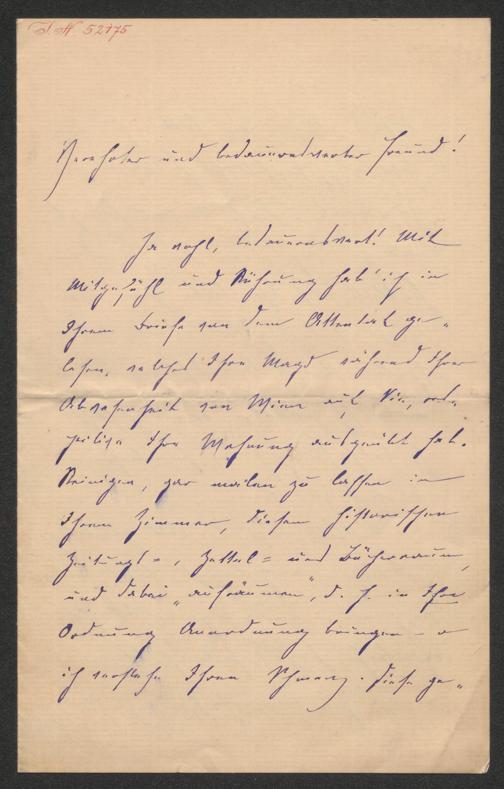 J. N. 52775
Verehrter und bedauernswerter Freund!
Ja wohl, bedauernswert! Mit
Mitgefühl und Rührung hab' ich in
Ihrem Briefe von dem Attentat ge-
lesen, welches Ihre Magd während Ihrer
Abwesenheit von Wien auf Sie, resp.
Ihre Wohnung ausgeübt hat.
Reinigen, gar malen zu lassen in
Ihrem Zimmer, diesem historischen
Zeitungs-, Zettel- und Bücherraum,
und dabei „aufräumen“, d. h. in Ihre
Ordnung Anordnung bringen – o
ich verstehe Ihren Schmerz. Diese ge-